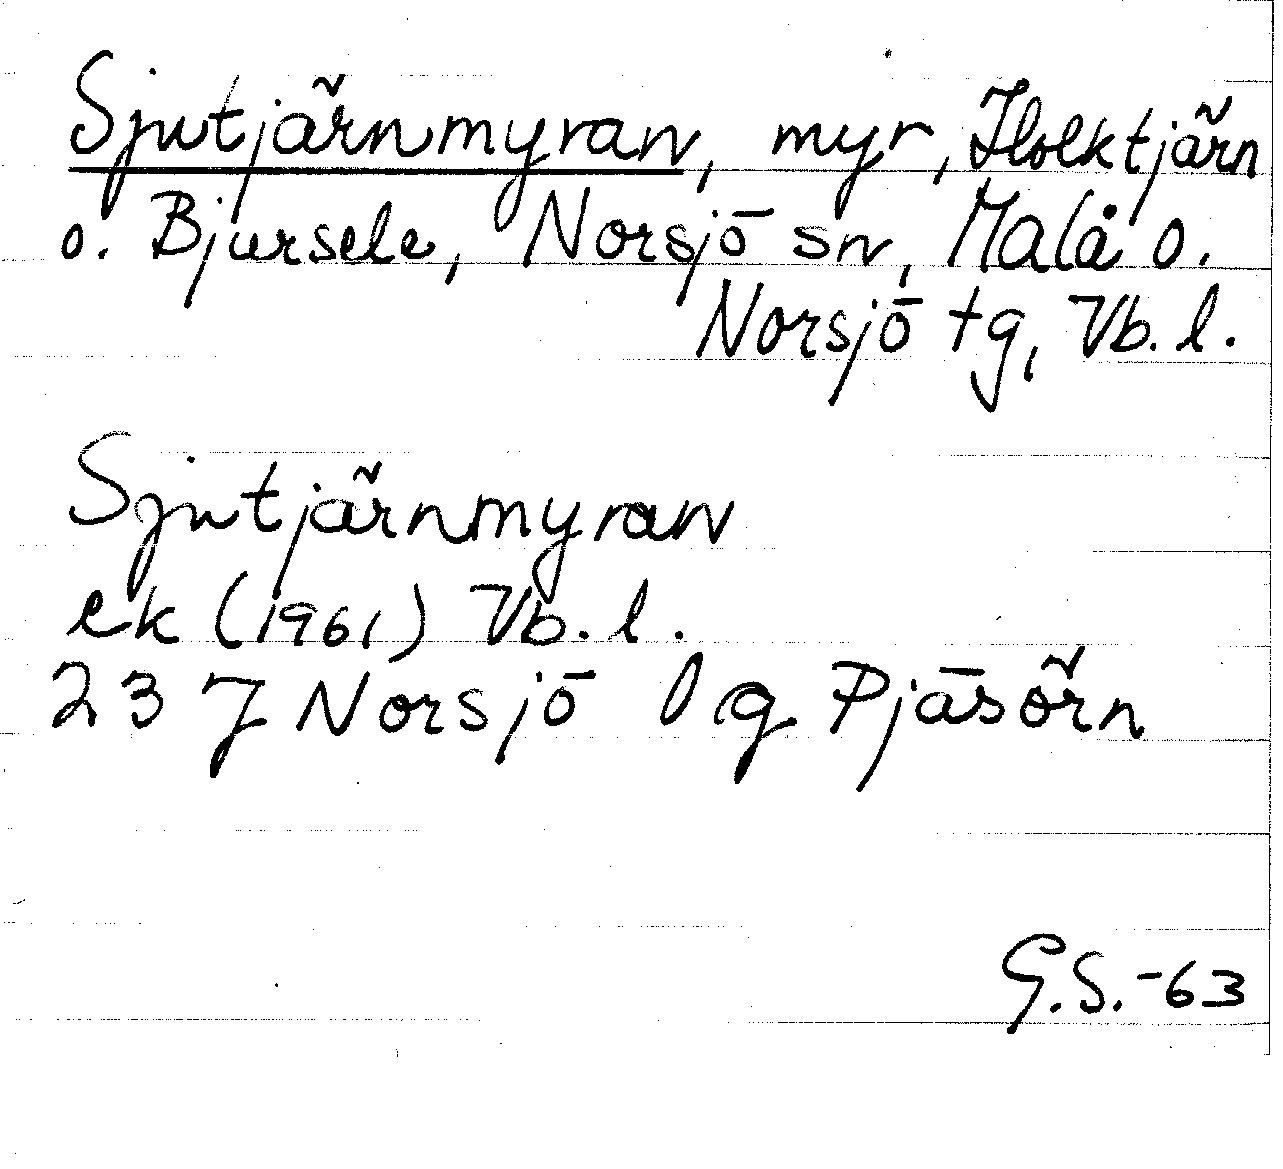 Sjutjärnmyran, myr, Holktjärn
o. Bjursele, Norsjö sn, Malå o.
Norsjö tg, Vb. l.
Sjutjärnmyran
ek (1961) Vb. l.
23 J Norsjö l g Pjäsörn
G.S.-63